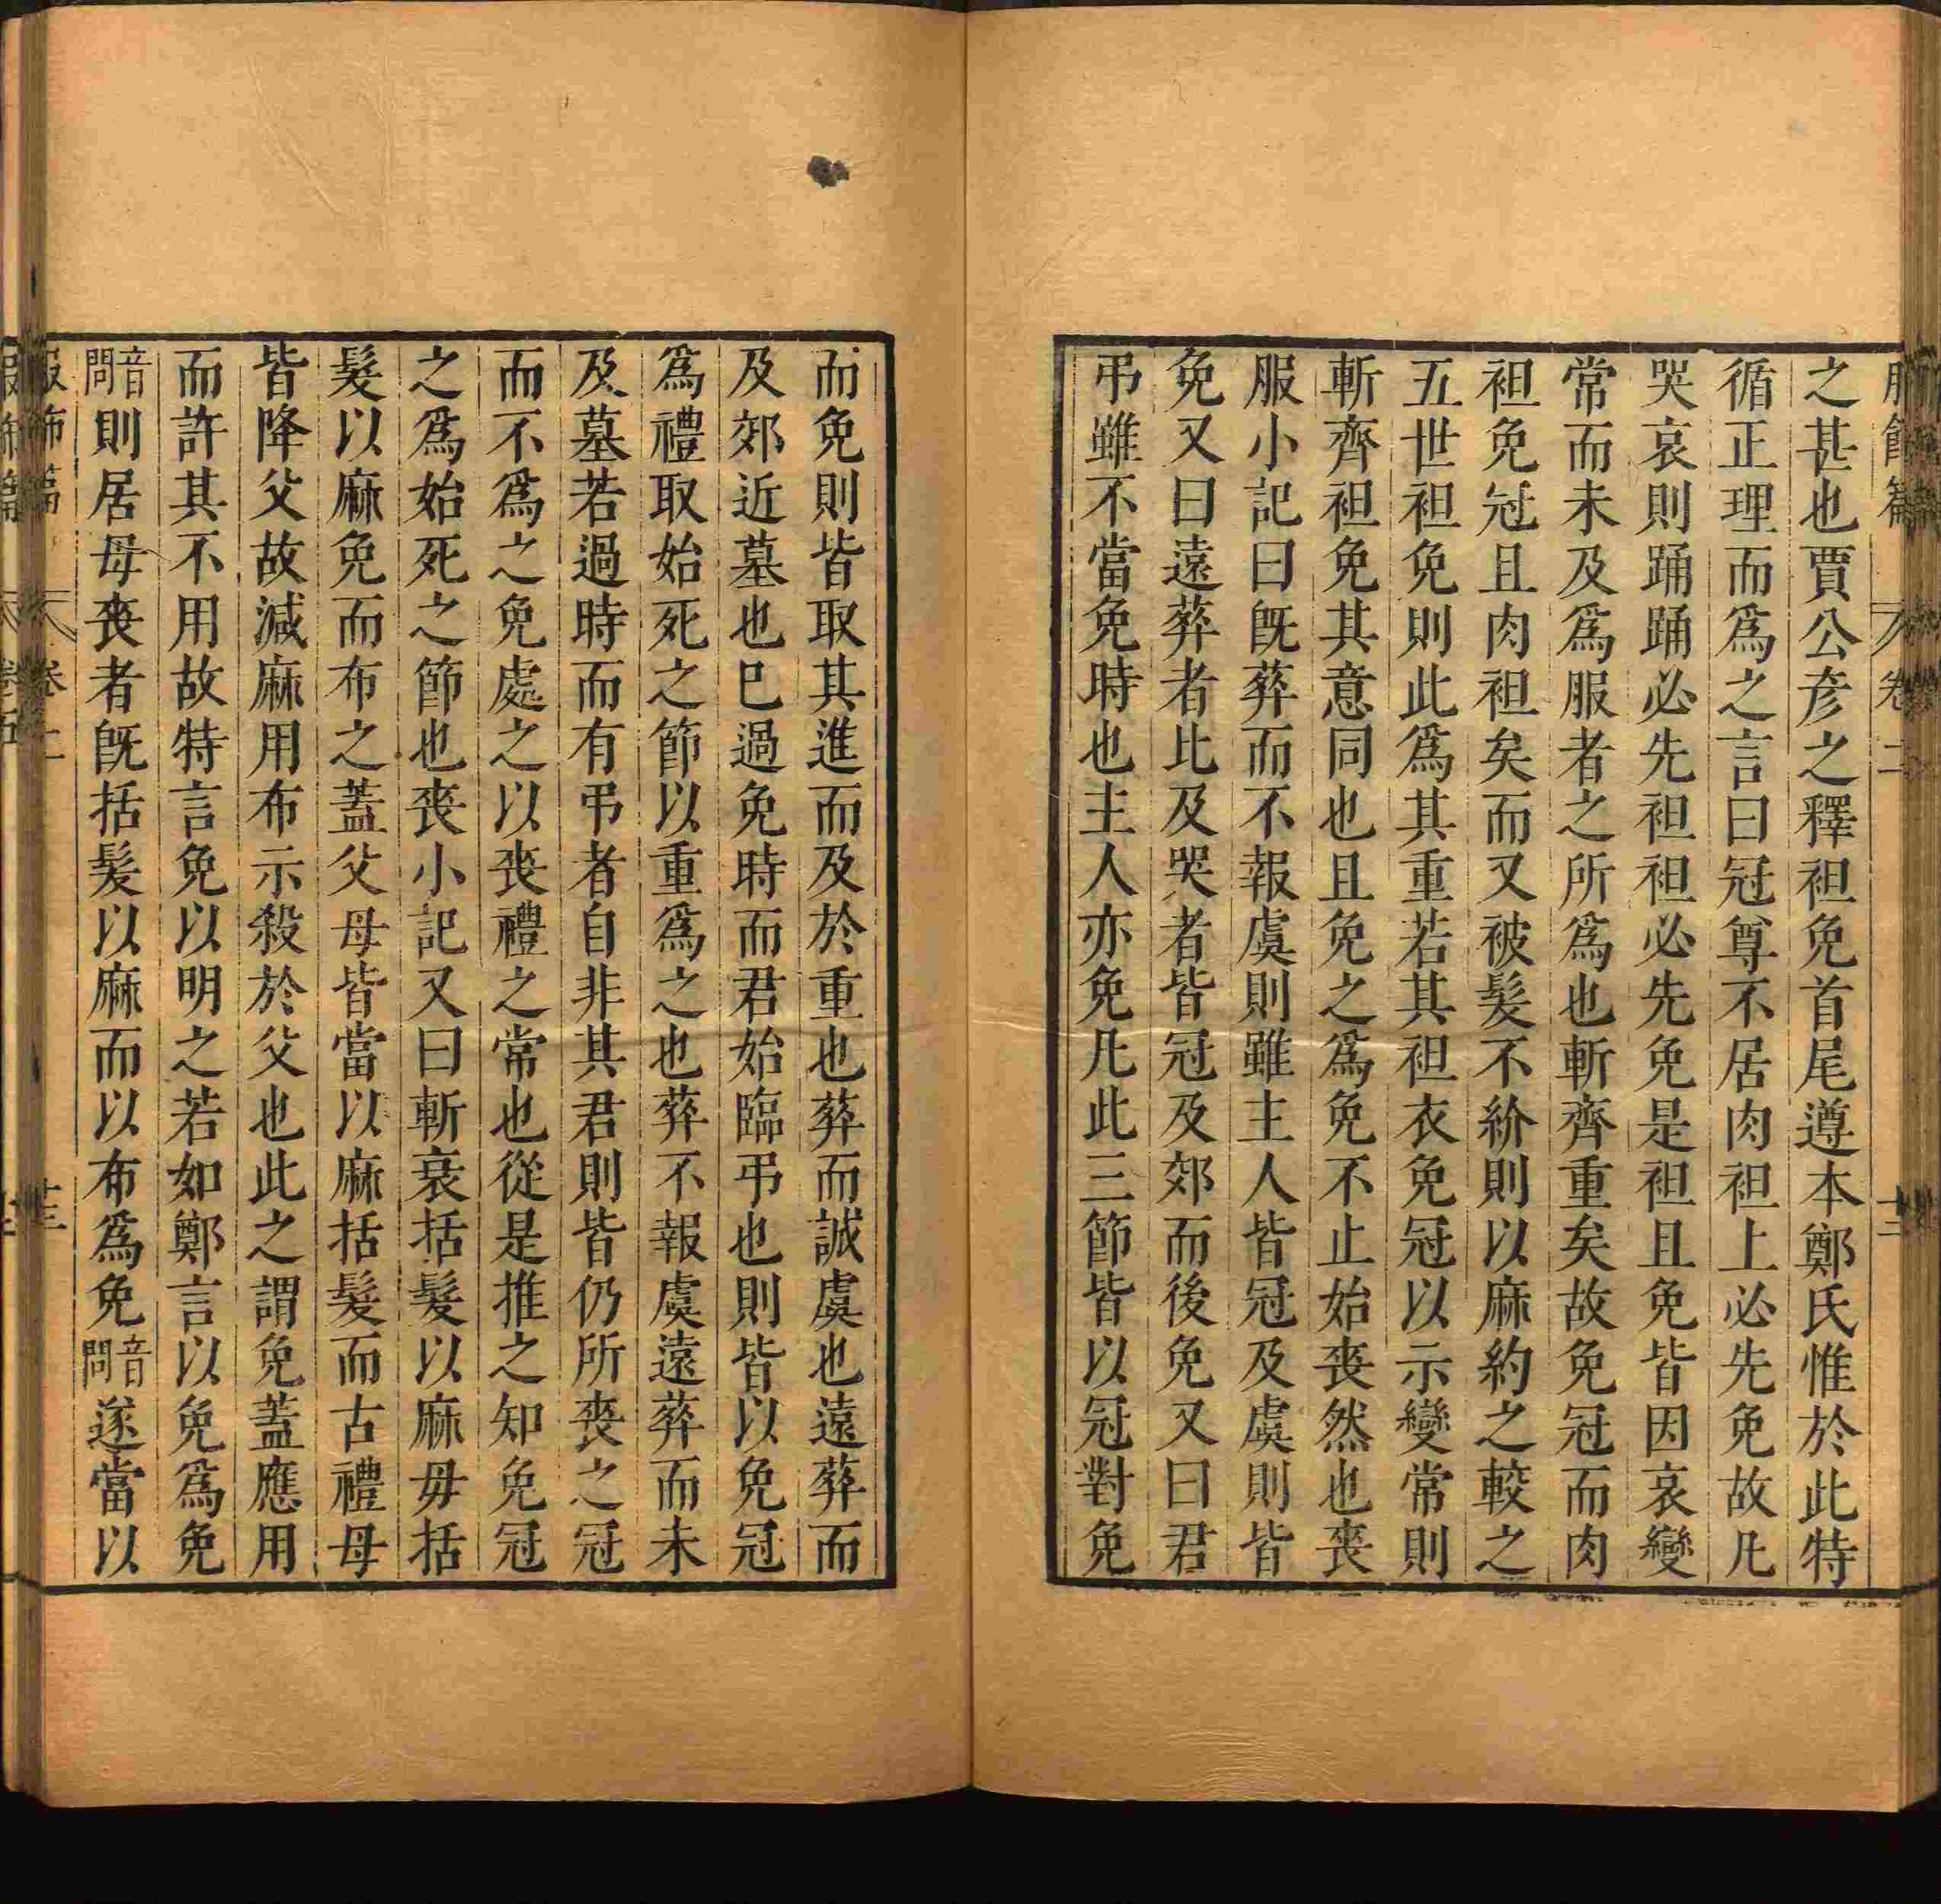 之甚也賈公彥之釋袒免首尾遵本鄭氏惟於此特
循正理而爲之言曰冠尊不居肉袒上必先免故凡
哭哀則踊踊必先袒袒必先免是袒且免皆因哀變
常而未及爲服者之所爲也斬齊重矣故免冠而肉
袒免冠且肉袒矣而又被髮不紒則以麻約之較之
五世袒免則此爲其重若其袒衣免冠以示變常則
斬齊袒免其意同也且免之爲免不止始喪然也喪
服小記曰旣葬而不報虞則雖主人皆冠及虞則皆
免又曰遠葬者比及哭者皆冠及郊而後免又曰君
弔雖不當免時也主人亦免凡此三節皆以冠對免
而免則皆取其進而及於重也葬而誠虞也遠葬而
及郊近墓也巳過免時而君始臨弔也則皆以免冠
爲禮取始死之節以重爲之也葬不報虞遠葬而未
及墓若過時而有弔者自非其君則皆仍所喪之冠
而不爲之免處之以喪禮之常也從是推之知免冠
之爲始死之節也喪小記又曰斬衰括髮以麻毋括
髮以麻免而布之蓋父母皆當以麻括髮而古禮母
皆降父故減麻用布示殺於父也此之謂免蓋應用
而許其不用故特言免以明之若如鄭言以免爲免
音問則居母喪者旣括髮以麻而以布爲免音問遂當以
服飾篇 卷二 十三